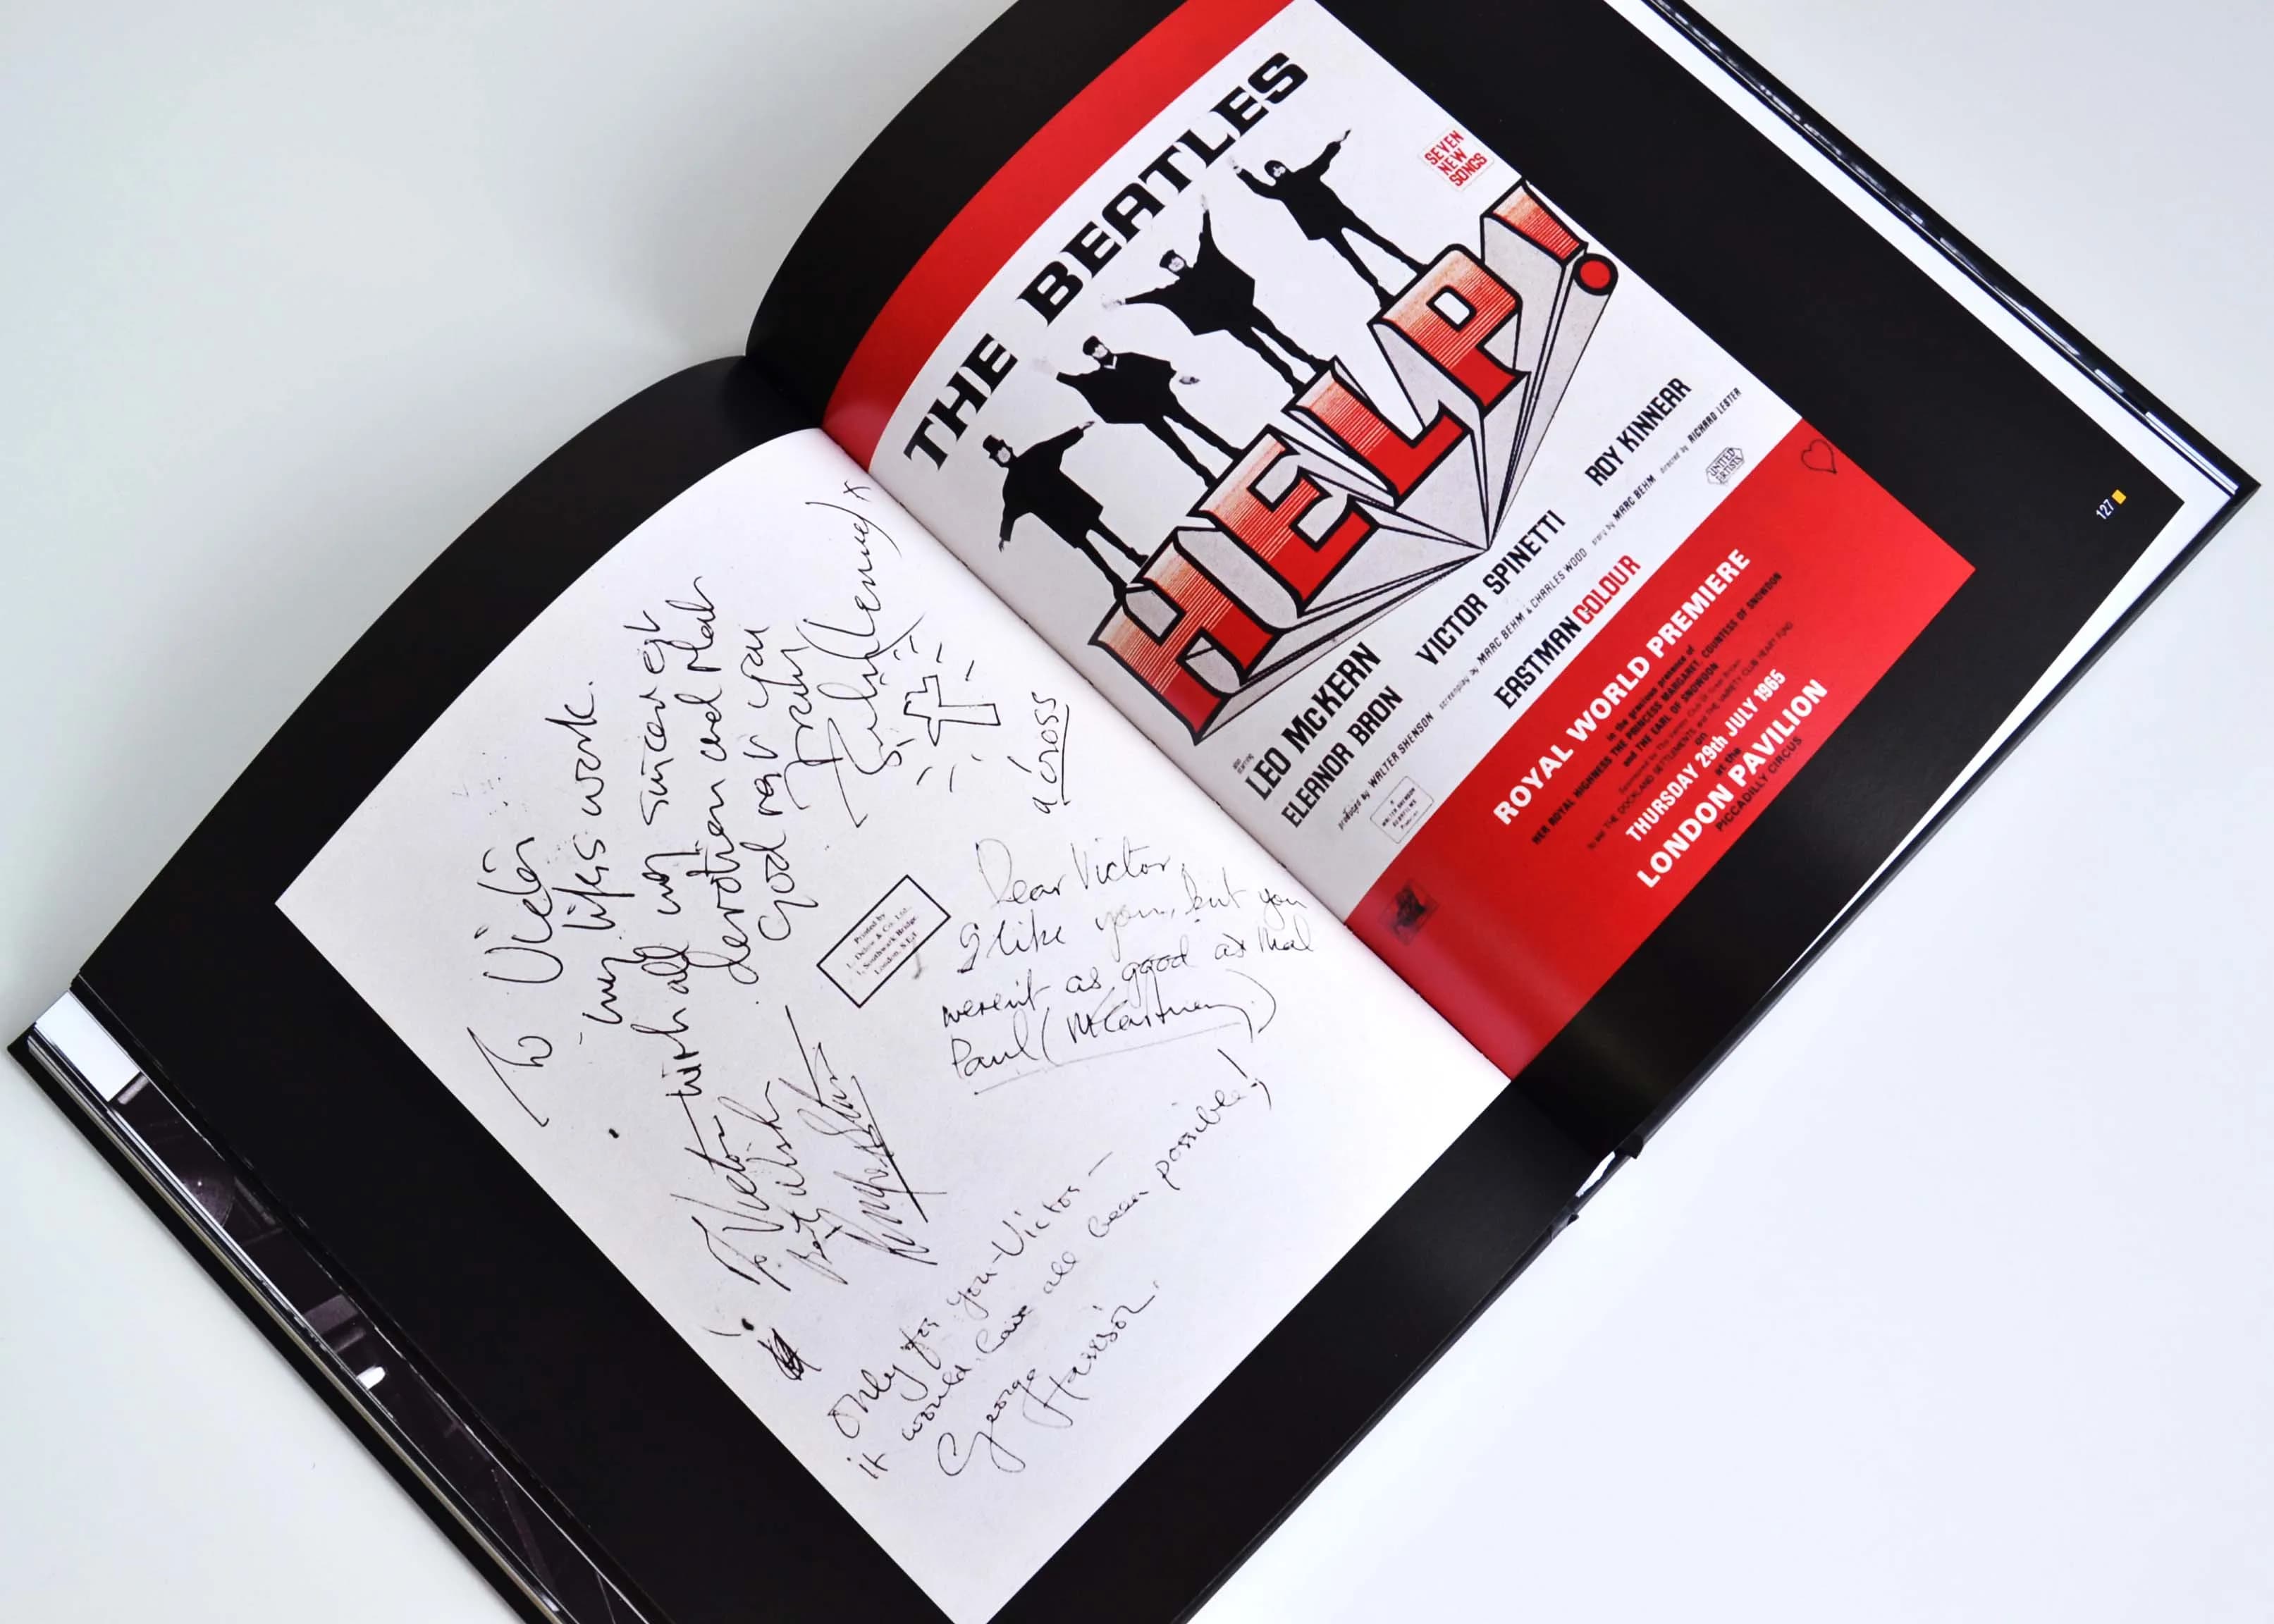 To Victor
my lifes work.
with all my sincerest
devotion and
god rest you
John (Lennon) x
a cross
Printed by
London, S.E.1
Dear Victor,
I like you, but you
weren't as good as that
Paul (McCartney)
To Victor
best wishes
Ringo Starr
Only for you - Victor -
it would have all been possible!
George
Harrison.
THE BEATLES
SEVEN
NEW
SONGS
HELP!
also
starring
LEO McKERN
ELEANOR BRON
VICTOR SPINETTI
ROY KINNEAR
produced by WALTER SHENSON screenplay by MARC BEHM & CHARLES WOOD story by MARC BEHM directed by RICHARD LESTER
EASTMAN COLOUR
UNITED
ARTISTS
ROYAL WORLD PREMIERE
in the gracious presence of
HER ROYAL HIGHNESS THE PRINCESS MARGARET, COUNTESS OF SNOWDON
and THE EARL OF SNOWDON
on
THURSDAY 29th JULY 1965
at the
LONDON PAVILION
PICCADILLY CIRCUS
127